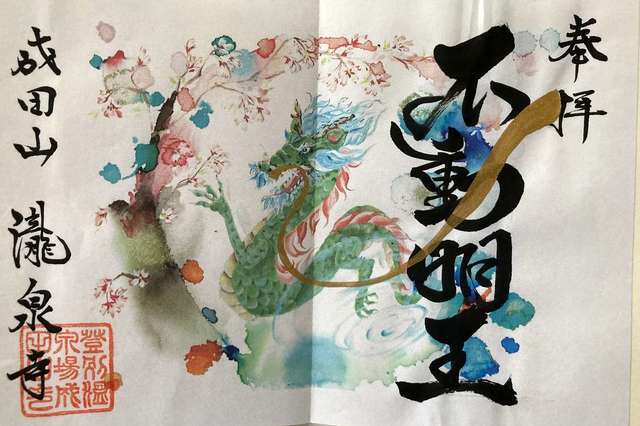 奉拝
不動明王
成田山 瀧泉寺